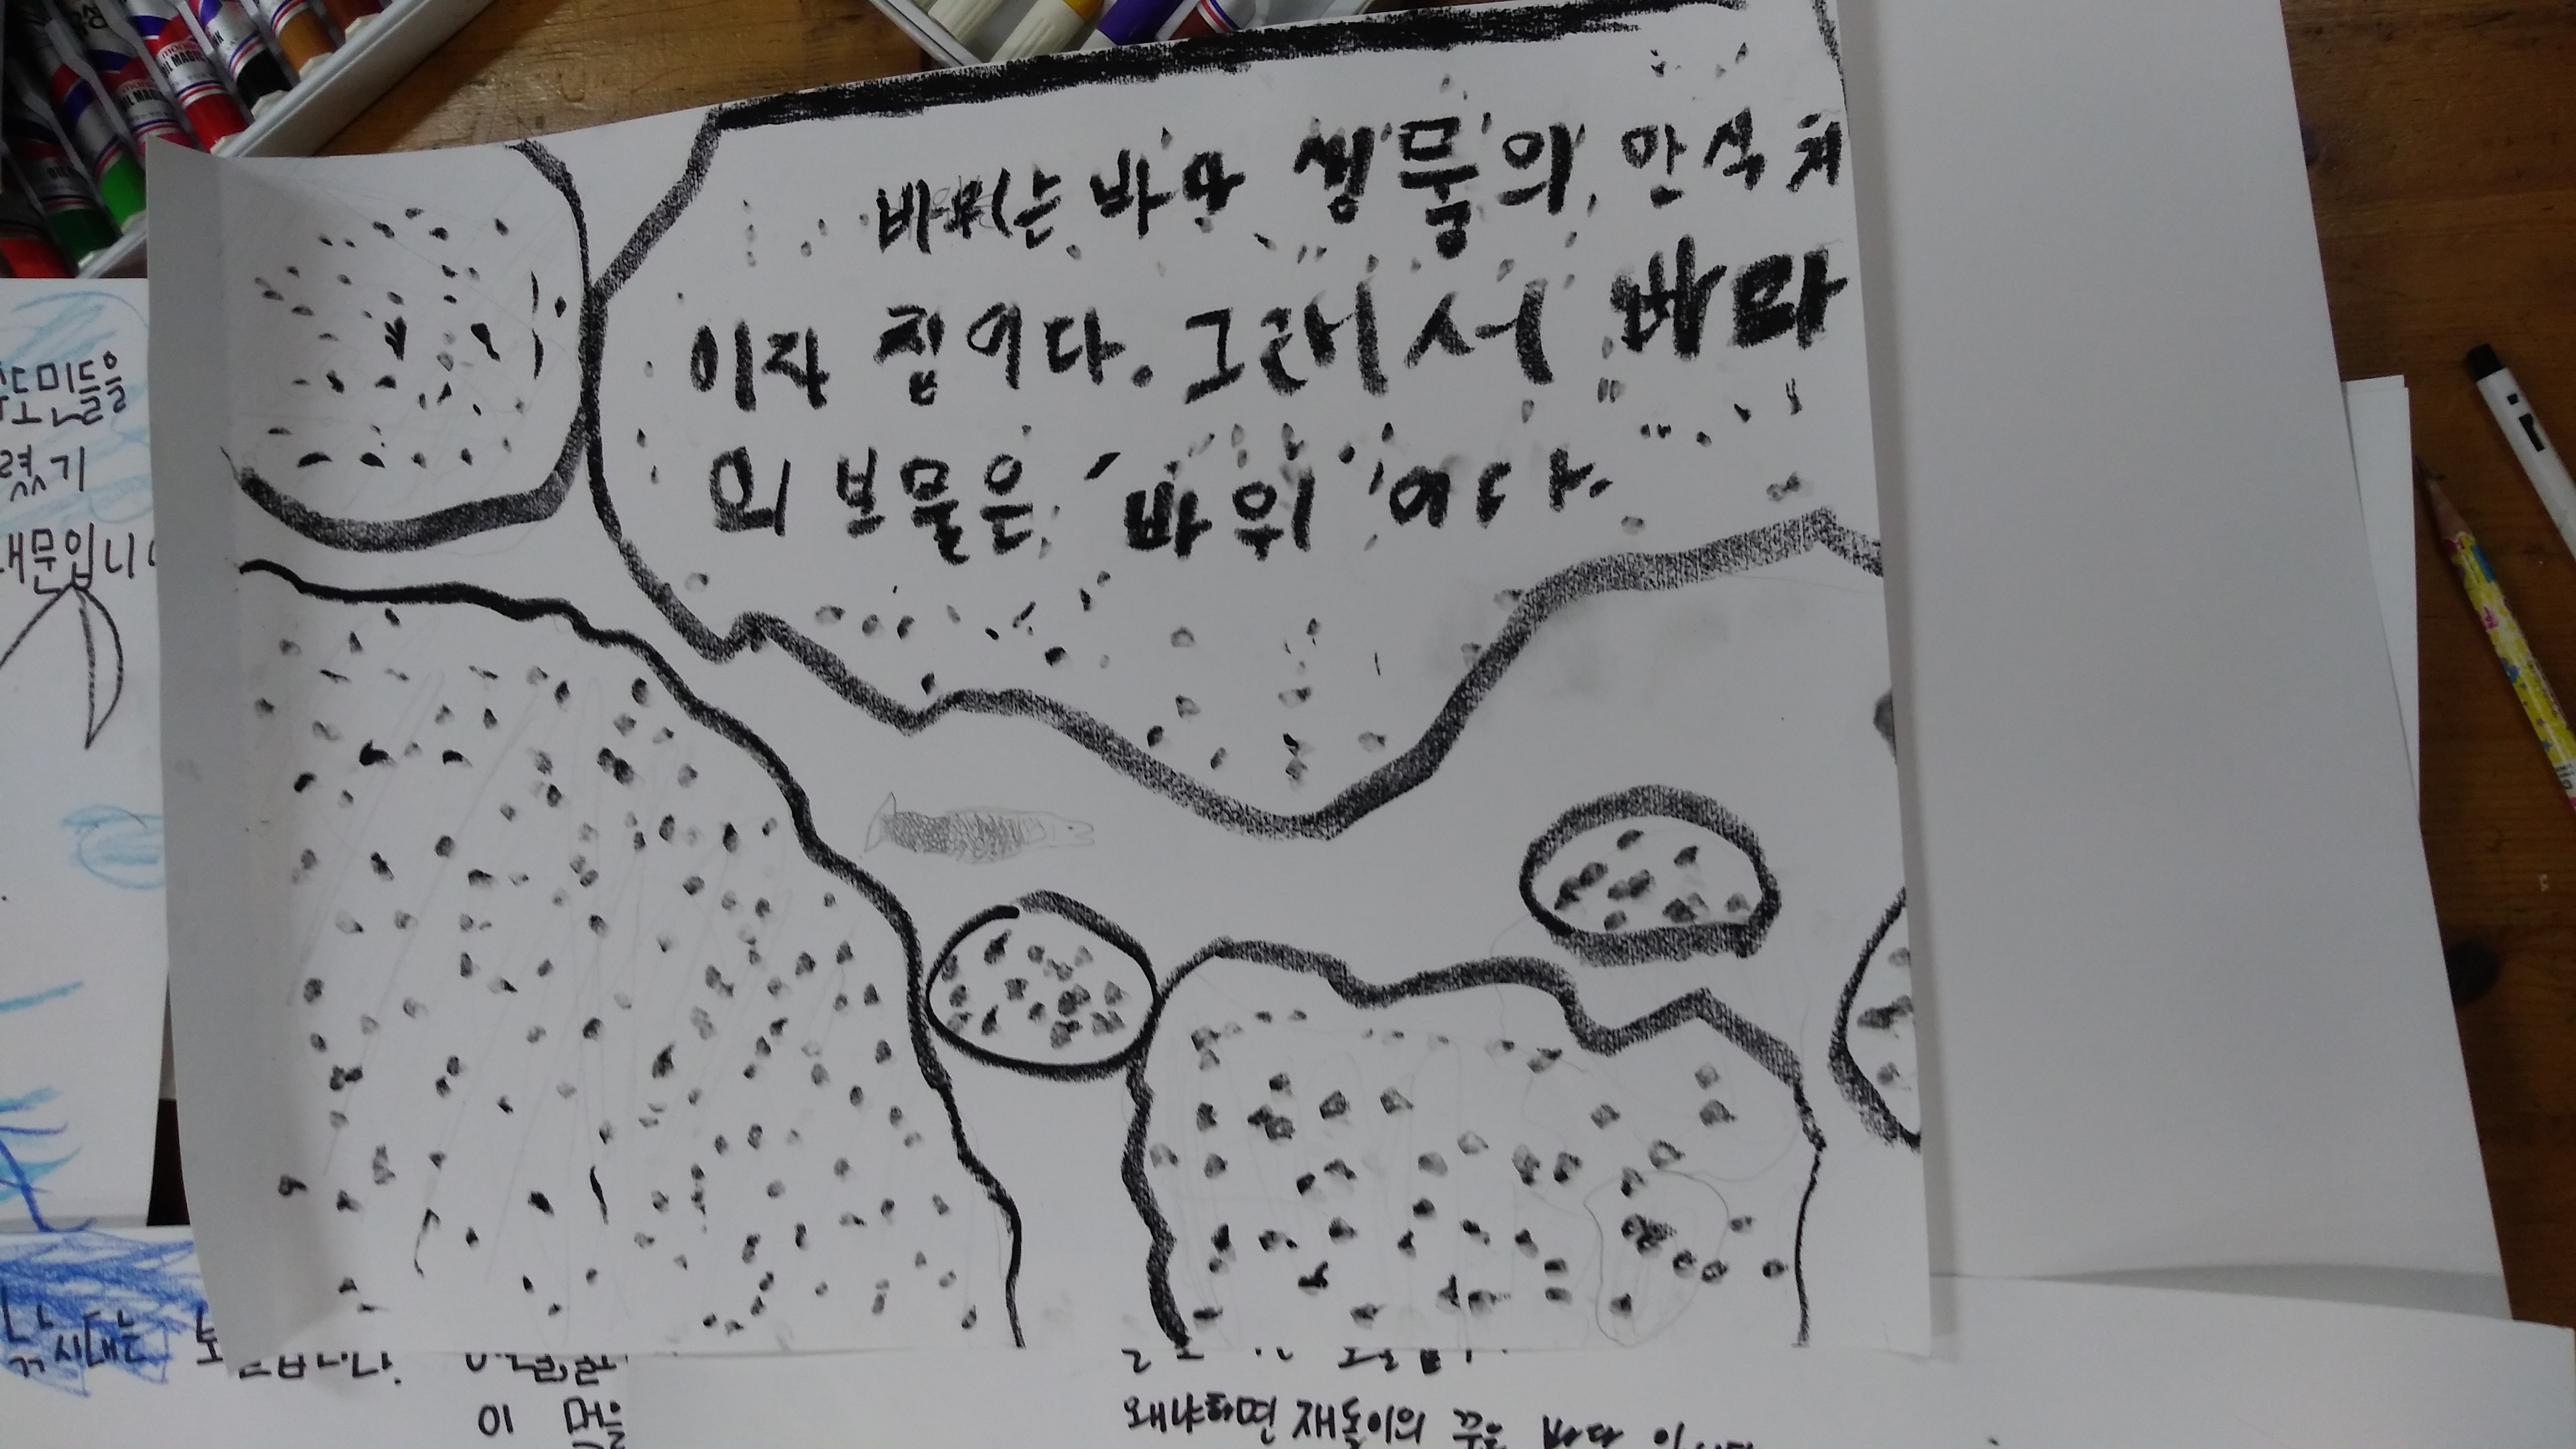 바위는 바다 생물의 안식처
이자 집이다. 그래서 바다
의 보물은 '바위' 이다.
민들을
렸기
입니
낚시대는
이 먼을
왜냐하면 재돌이의 꿈은 바다